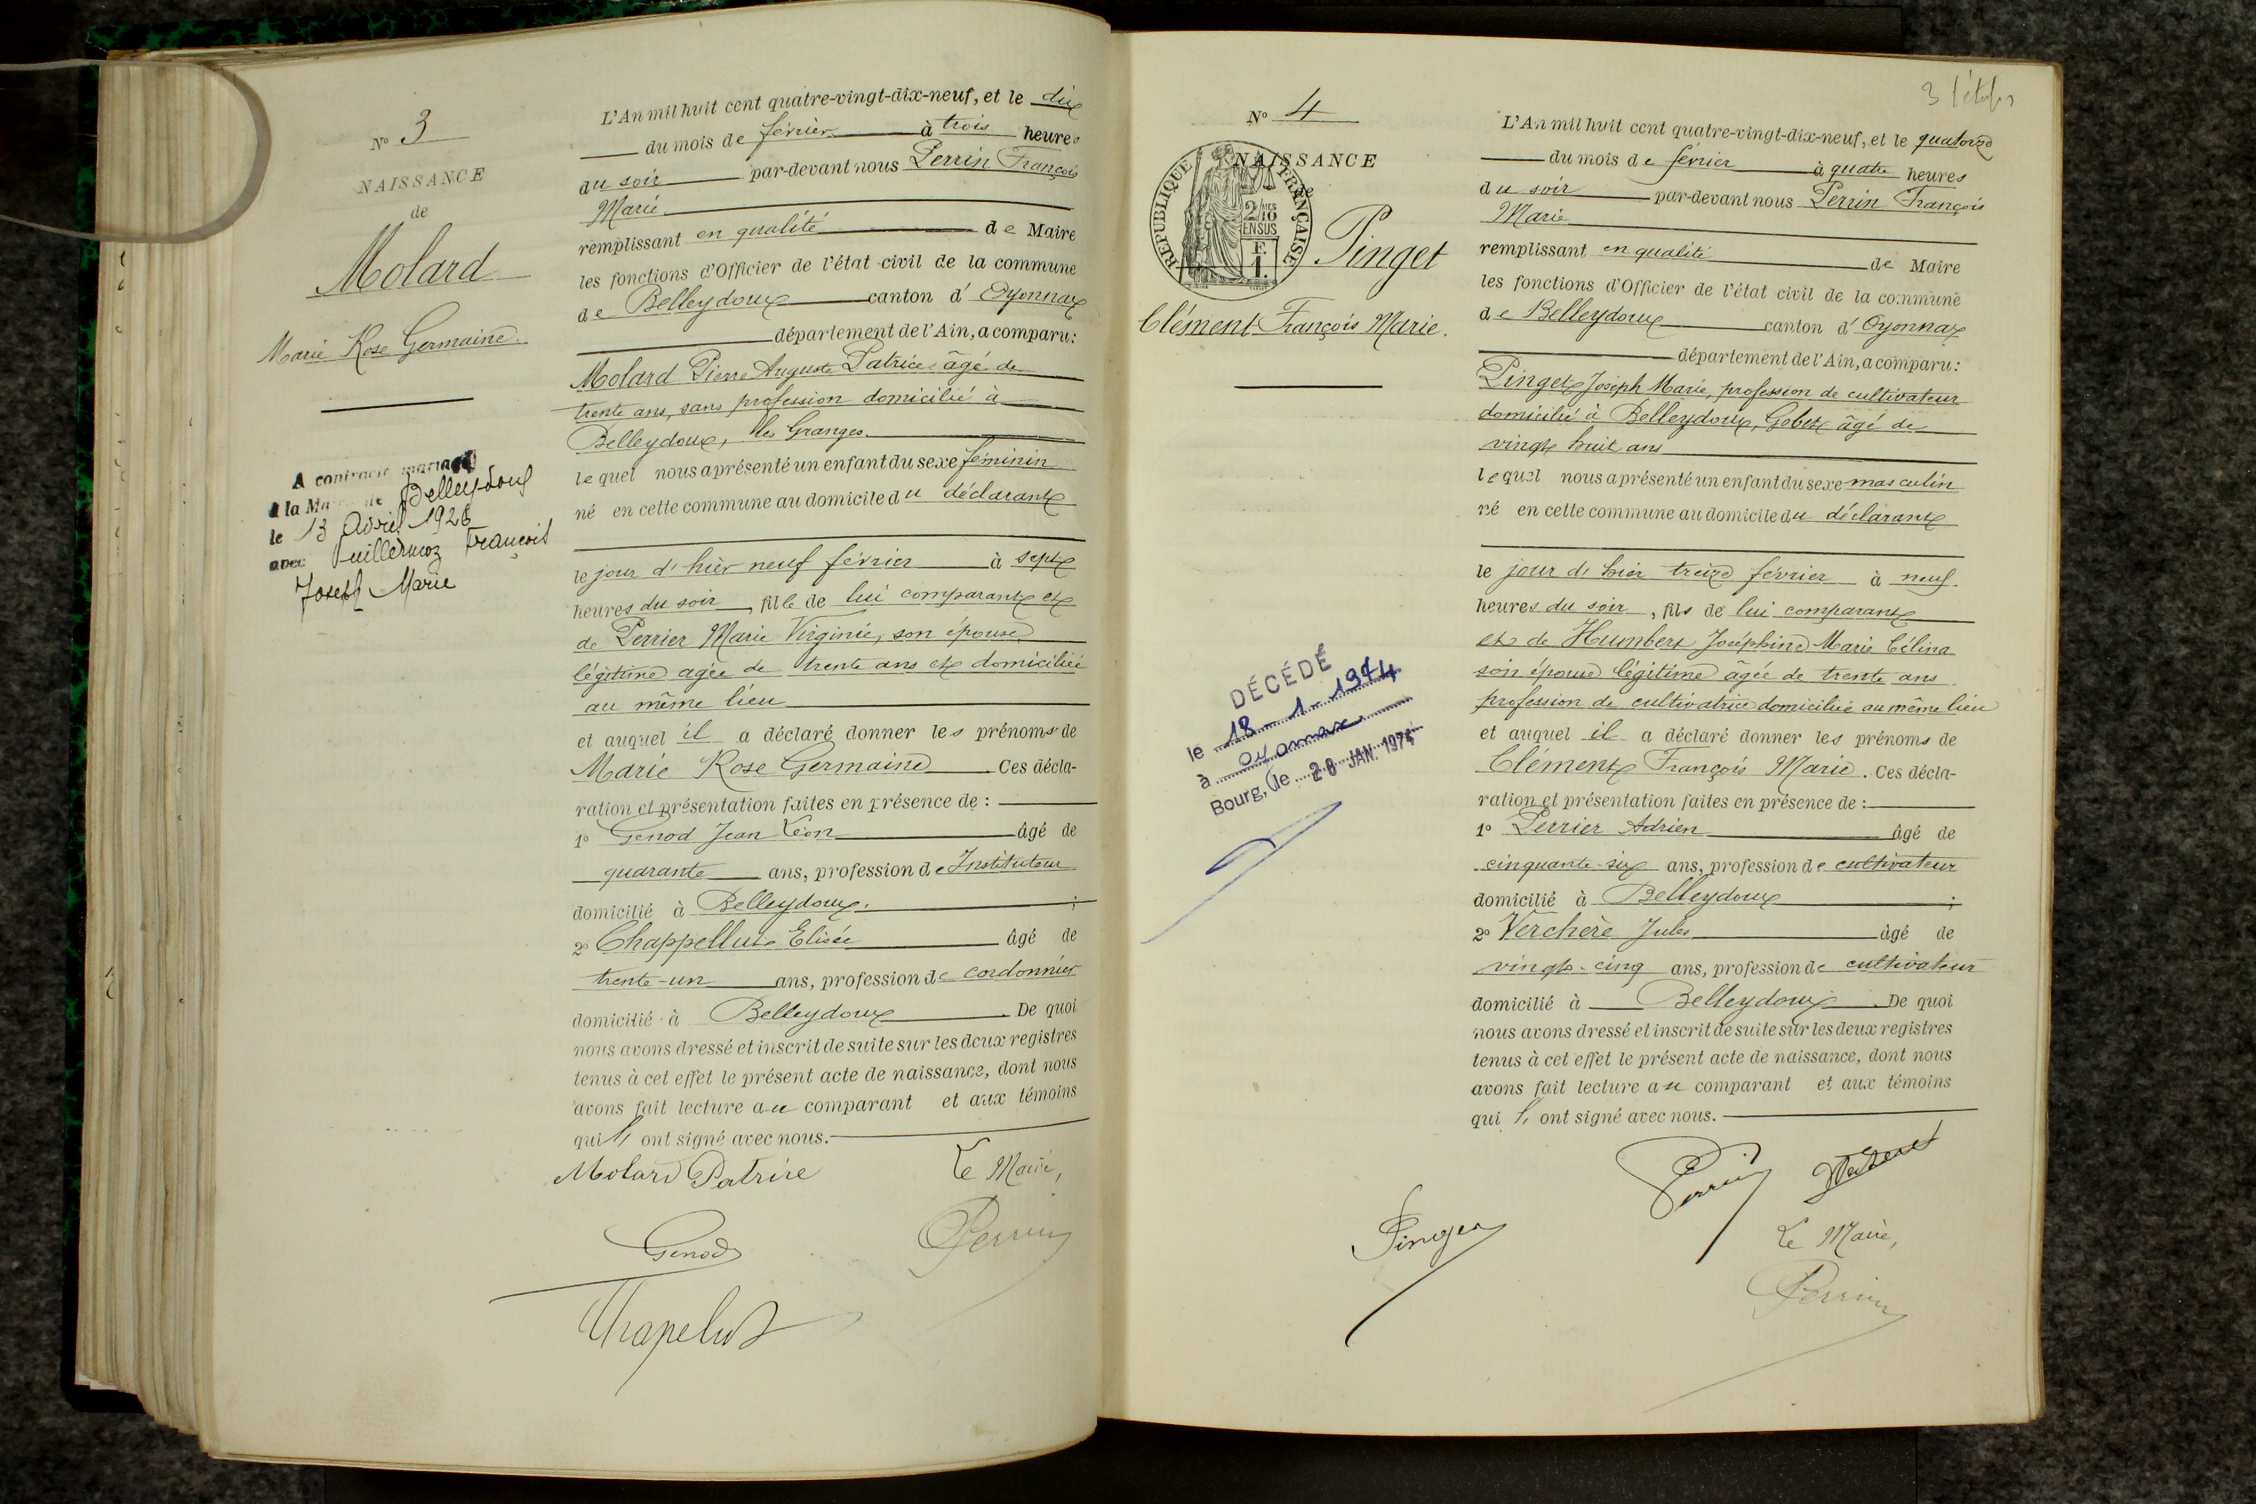 No 3
NAISSANCE
de
Molard
Marie Rose Germaine.
A contracté mariage
à la Mairie de Belleydoux
le 13 Avril 1926
avec Vuillermoz François
Joseph Marie
L'An mil huit cent quatre-vingt-dix-neuf, et le dix
du mois de février à trois heures
du soir par-devant nous Perrin François
Marie
remplissant en qualité de Maire
les fonctions d'Officier de l'état civil de la commune
de Belleydoux canton d' Oyonnax
département de l'Ain, a comparu:
Molard Pierre Auguste Patrice âgé de
trente ans, sans profession domicilié à
Belleydoux, les Granges
lequel nous a présenté un enfant du sexe féminin
né en cette commune au domicile du déclarant
le jour d'hier neuf février à sept
heures du soir, fille de lui comparant et
de Perrier Marie Virginie, son épouse
légitime agée de trente ans et domiciliée
au même lieu
et auquel il a déclaré donner les prénoms de
Marie Rose Germaine Ces décla-
ration et présentation faites en présence de :
1º Genod Jean Léon âgé de
quarante ans, profession de Instituteur
domicilié à Belleydoux. ;
2º Chappellut Elisée âgé de
trente-un ans, profession de cordonnier
domicilié à Belleydoux. De quoi
nous avons dressé et inscrit de suite sur les deux registres
tenus à cet effet le présent acte de naissance, dont nous
avons fait lecture au comparant et aux témoins
qui ont signé avec nous.
Molard Patrice Le Maire,
Genod Perrin
Chapelut
3 
No 4
NAISSANCE
de
REPUBLIQUE FRANÇAISE
2/10 EN SUS
F. 1.
Pinget
Clément François Marie.
DÉCÉDÉ
le 18-1-1974
à Oyonnax
Bourg, le 28 JAN. 1974
L'An mil huit cent quatre-vingt-dix-neuf, et le quatorze
du mois de février à quatre heures
du soir par-devant nous Perrin François
Marie
remplissant en qualité de Maire
les fonctions d'Officier de l'état civil de la commune
de Belleydoux canton d' Oyonnax
département de l'Ain, a comparu:
Pinget Joseph Marie, profession de cultivateur
domicilié à Belleydoux, Gobet âgé de
vingt huit ans
lequel nous a présenté un enfant du sexe masculin
né en cette commune au domicile du déclarant
le jour d'hier treize février à neuf
heures du soir, fils de lui comparant
et de Humbert Joséphine Marie Célina
son épouse légitime âgée de trente ans
profession de cultivatrice domiciliée au même lieu
et auquel il a déclaré donner les prénoms de
Clément François Marie. Ces décla-
ration et présentation faites en présence de :
1º Perrier Adrien âgé de
cinquante-six ans, profession de cultivateur
domicilié à Belleydoux ;
2º Verchère Jules âgé de
vingt-cinq ans, profession de cultivateur
domicilié à Belleydoux. De quoi
nous avons dressé et inscrit de suite sur les deux registres
tenus à cet effet le présent acte de naissance, dont nous
avons fait lecture au comparant et aux témoins
qui ont signé avec nous.
Pinget
Le Maire,
Perrin